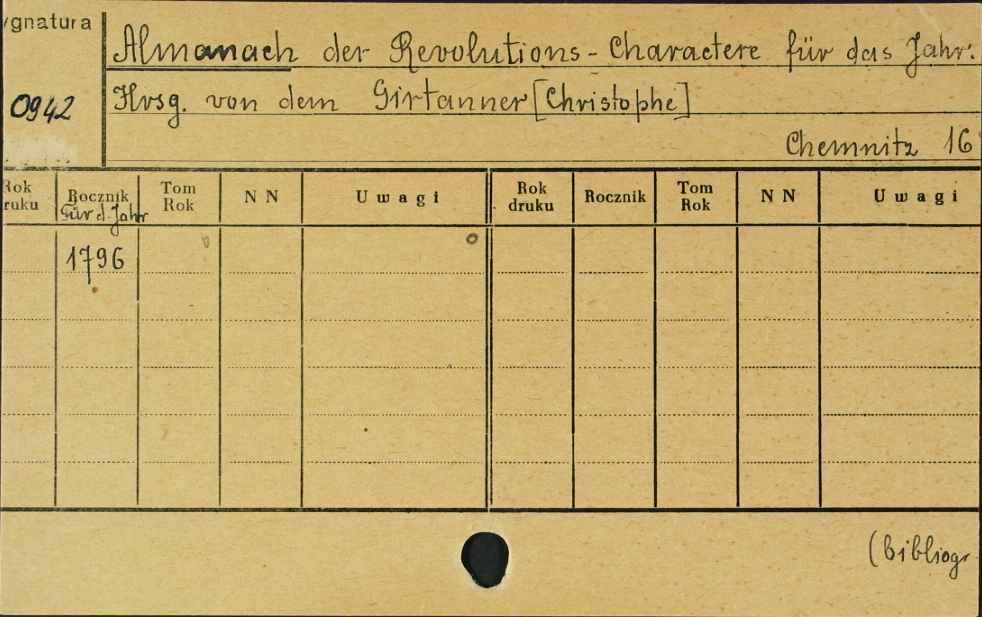 ygnatura
0942
Almanach der Revolutions-Charactere für das Jahr.
Hrsg. von dem Girtanner [Christophe]
Chemnitz 16°
Rok ruku Rocznik Für d. Jahr Tom Rok N N Uwagi Rok druku Rocznik Tom Rok N N Uwagi
1796
(bibliogr